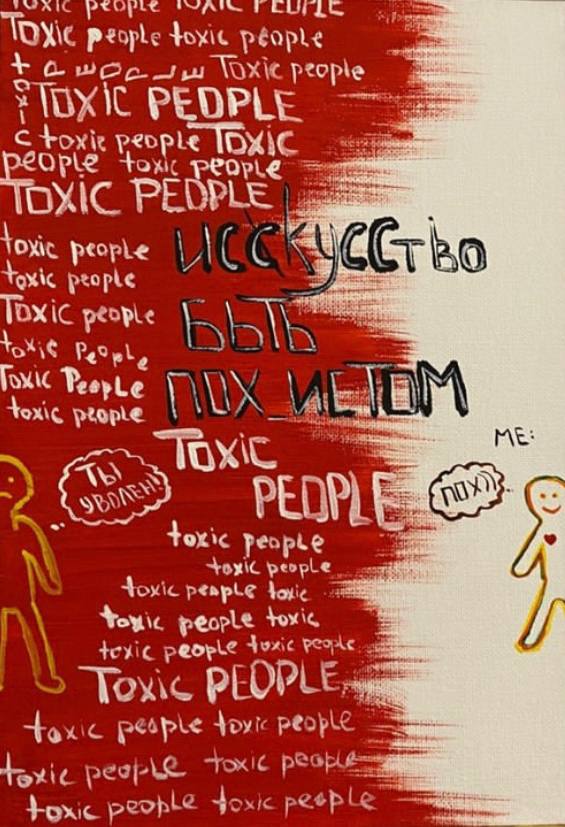 Toxic people TOXIC PEOPLE
Toxic people toxic people
toxic people Toxic people
TOXIC PEOPLE
toxic people TOXIC
people toxic people
TOXIC PEOPLE
toxic people
toxic people
Toxic people
toxic people
Toxic People
toxic people
исскуССтво
быть
пох_истом
Toxic
PEOPLE
ME:
ТЫ
УВОЛЕН!
ПОХ))
toxic people
toxic people
toxic people toxic
toxic people toxic
toxic people toxic people
Toxic PEOPLE
toxic people toxic people
toxic people toxic people
toxic people toxic people